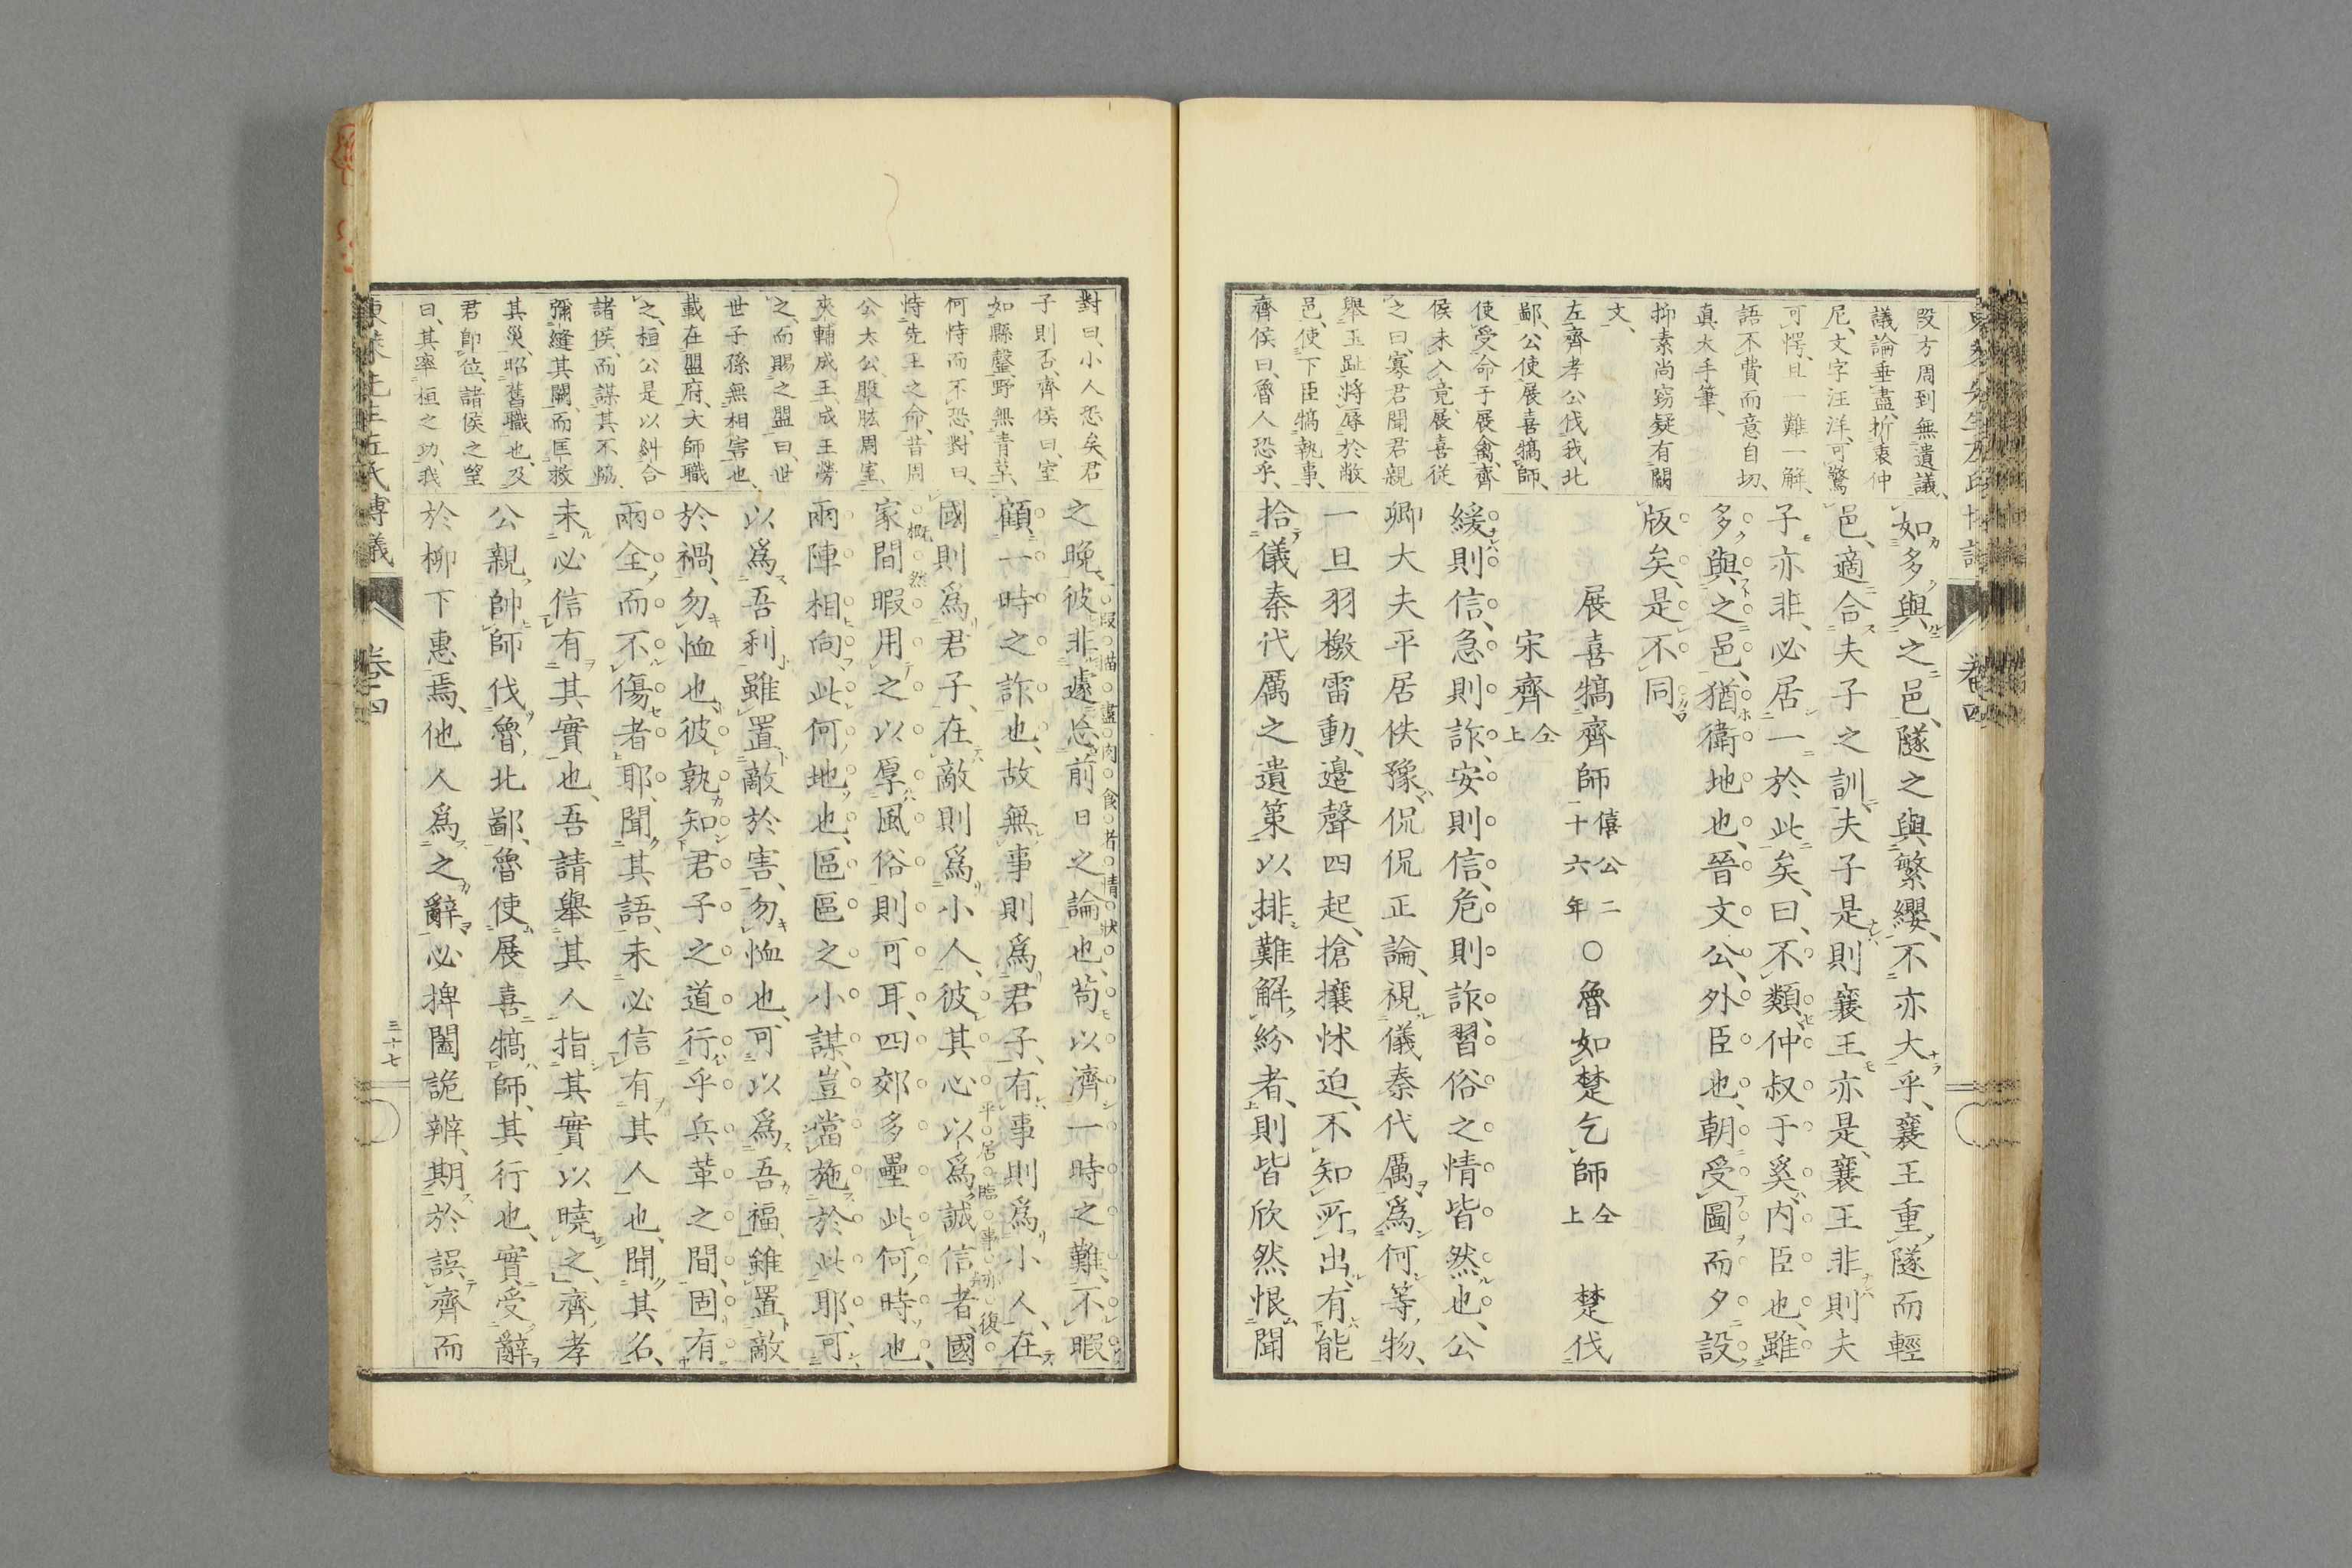 段方周到無遺議、
議論垂盡、折衷仲
尼、文字汪洋、可驚
可愕、且一難一解、
語不費而意自切、
真大手筆、
抑素尚窈疑有闕
文、
左齊孝公伐我北
鄙、公使展喜犒師、
使受命于展禽、齊
侯未入竟、展喜從
之曰、寡君聞君親
舉玉趾、將辱於敝
邑、使下臣犒執事、
齊侯曰、魯人恐乎、
如多與之邑、隧之與繁纓、不亦大乎、襄王重隧而輕
邑、適合夫子之訓、夫子是則襄王亦是、襄王非則夫
子亦非、必居一於此矣、曰、不類、仲叔于奚、内臣也、雖
多與之邑、猶衛地也、晉文公、外臣也、朝受圖而夕設
版矣、是不同
展喜犒齊師僖公二十六年○魯如楚乞師仝上 楚伐
宋齊仝上
緩則信、急則詐、安則信、危則詐、習俗之情皆然也、公
卿大夫平居佚豫、侃侃正論、視儀秦代厲爲何等物、
一旦羽檄雷動、邊聲四起、搶攘怵迫、不知所出、有能
拾儀秦代厲之遺策、以排難解紛者、則皆欣然恨聞
卷四
對曰、小人恐矣、君
子則否、齊侯曰、室
如縣罄、野無青草、
何恃而不恐、對曰、
恃先王之命、昔周
公大公、股肱周室、
夾輔成王、成王勞
之、而賜之盟曰、世
世子孫無相害也、
載在盟府、大師職
之、桓公是以糾合
諸侯、而謀其不協、
彌縫其闕、而匡救
其災、昭舊職也、及
君卽位、諸侯之望
曰、其率桓之功、我
之晩、彼非遽忘前日之論也、苟以濟一時之難、不暇
段描盡肉食者情狀
顧一時之詐也、故無事則爲君子、有事則爲小人、在
國則爲君子、在敵則爲小人、彼其心以爲誠信者、國
平居臨事亦復
概然
家間暇用之以厚風俗則可耳、四郊多壘、此何時也、
兩陣相向、此何地也、區區之小謀、豈當施於此耶、可
以爲吾利、雖置敵於害、勿恤也、可以爲吾福、雖置敵
於禍、勿恤也、彼孰知君子之道行乎兵革之間、固有
兩全而不傷者耶、聞其語、未必信有其人也、聞其名、
未必信有其實也、吾請舉其人指其實以曉之、齊孝
公親帥師伐魯北鄙、魯使展喜犒師、其行也、實受辭
於柳下惠焉、他人爲之辭、必捭闔詭辨、期於誤齊而
東萊先生左氏博議 卷四 三十七